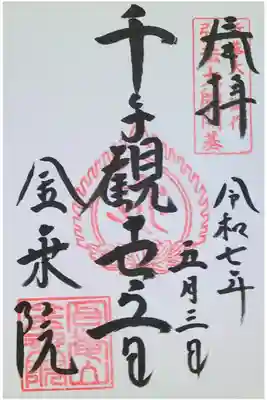 奉拝
令和七年
五月三日
千手觀世音
金乗院